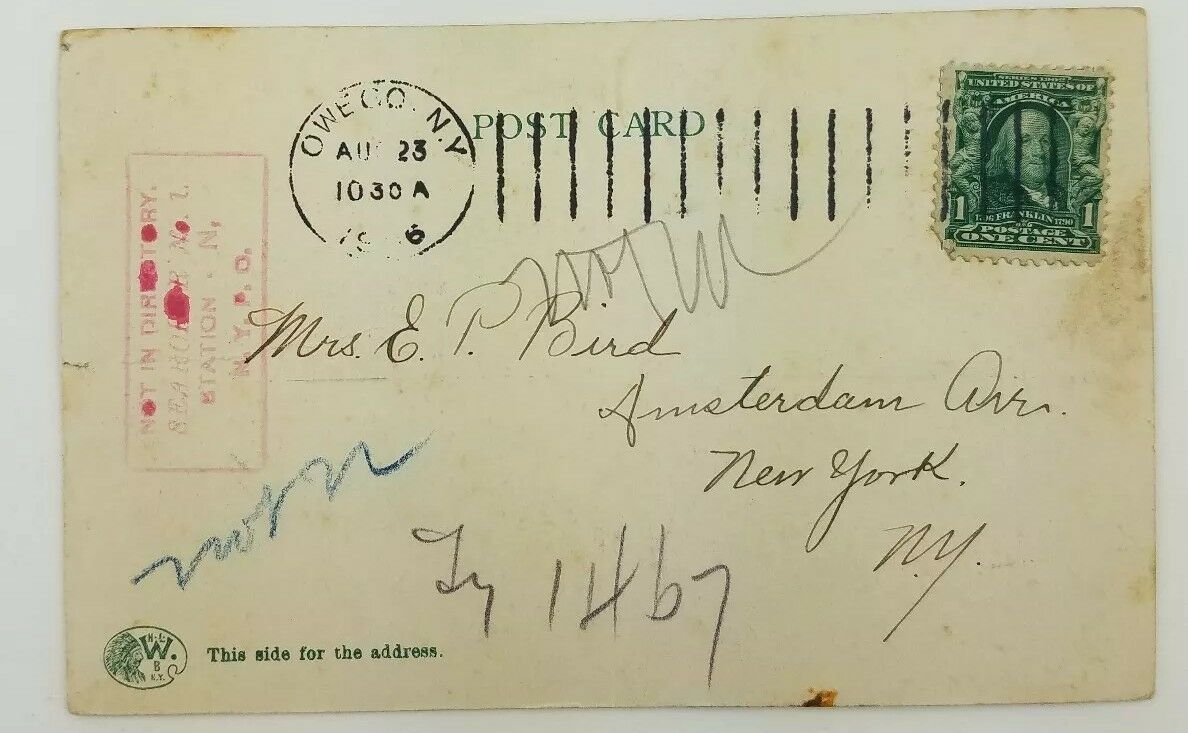 POST CARD
OWEGO, N.Y.
AUG 23
1030 A
SERIES 1902
UNITED STATES OF
AMERICA
1 1706 FRANKLIN 1790 1
POSTAGE
ONE CENT
NOT IN DIRECTORY.
SEARCHER No. 1.
STATION - N,
N. Y. P. O.
Mrs. E. P. Bird
Amsterdam Av.
New York.
N.Y.
Try 1467
H-L
W.
B
N.Y.
This side for the address.